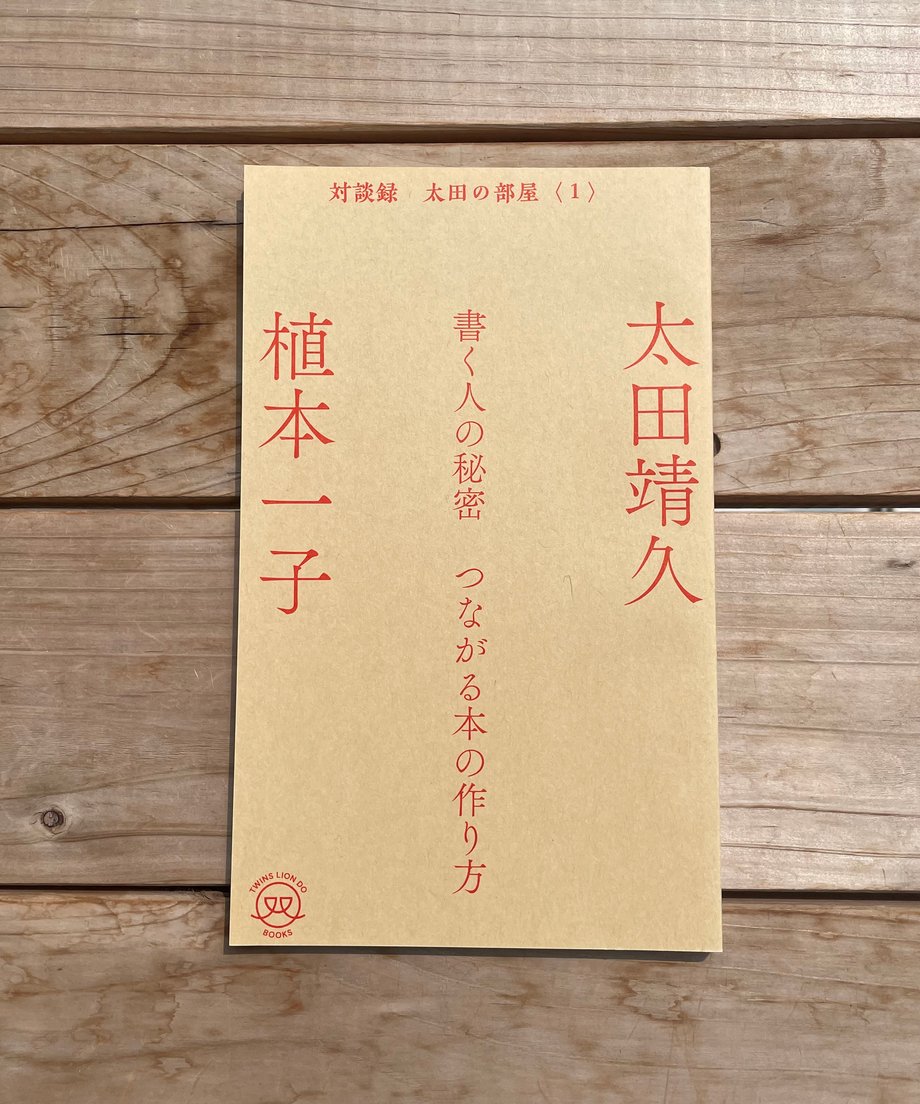 対談録　太田の部屋〈1〉
太田靖久
書く人の秘密　つながる本の作り方
植本一子
TWINS LION DO
BOOKS